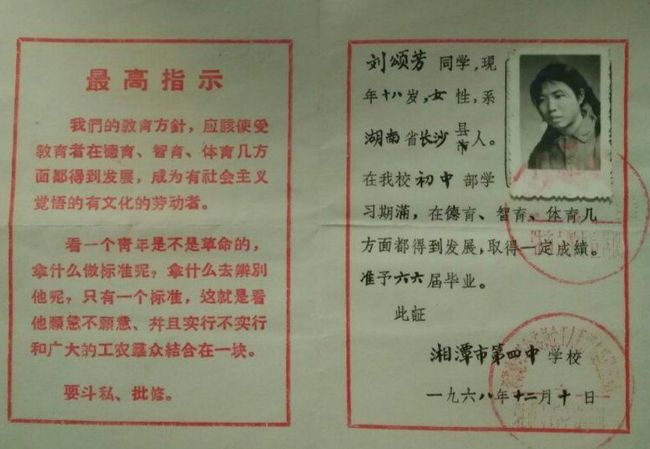 最高指示
我們的教育方針，应該使受
教育者在德育、智育、体育几方
面都得到发展，成为有社会主义
覚悟的有文化的劳动者。
看一个青年是不是革命的，
拿什么做标准呢？拿什么去辨别
他呢？只有一个标准，这就是看
他願意不願意、幷且实行不实行
和广大的工农羣众結合在一块。
要斗私、批修。
刘颂芳同学，现
年十八岁，女性，系
湖南省长沙县市人。
在我校初中部学
习期满，在德育、智育、体育几
方面都得到发展，取得一定成績。
准予六六届毕业。
此証
湘潭市第四中学校
一九六八年十二月十日